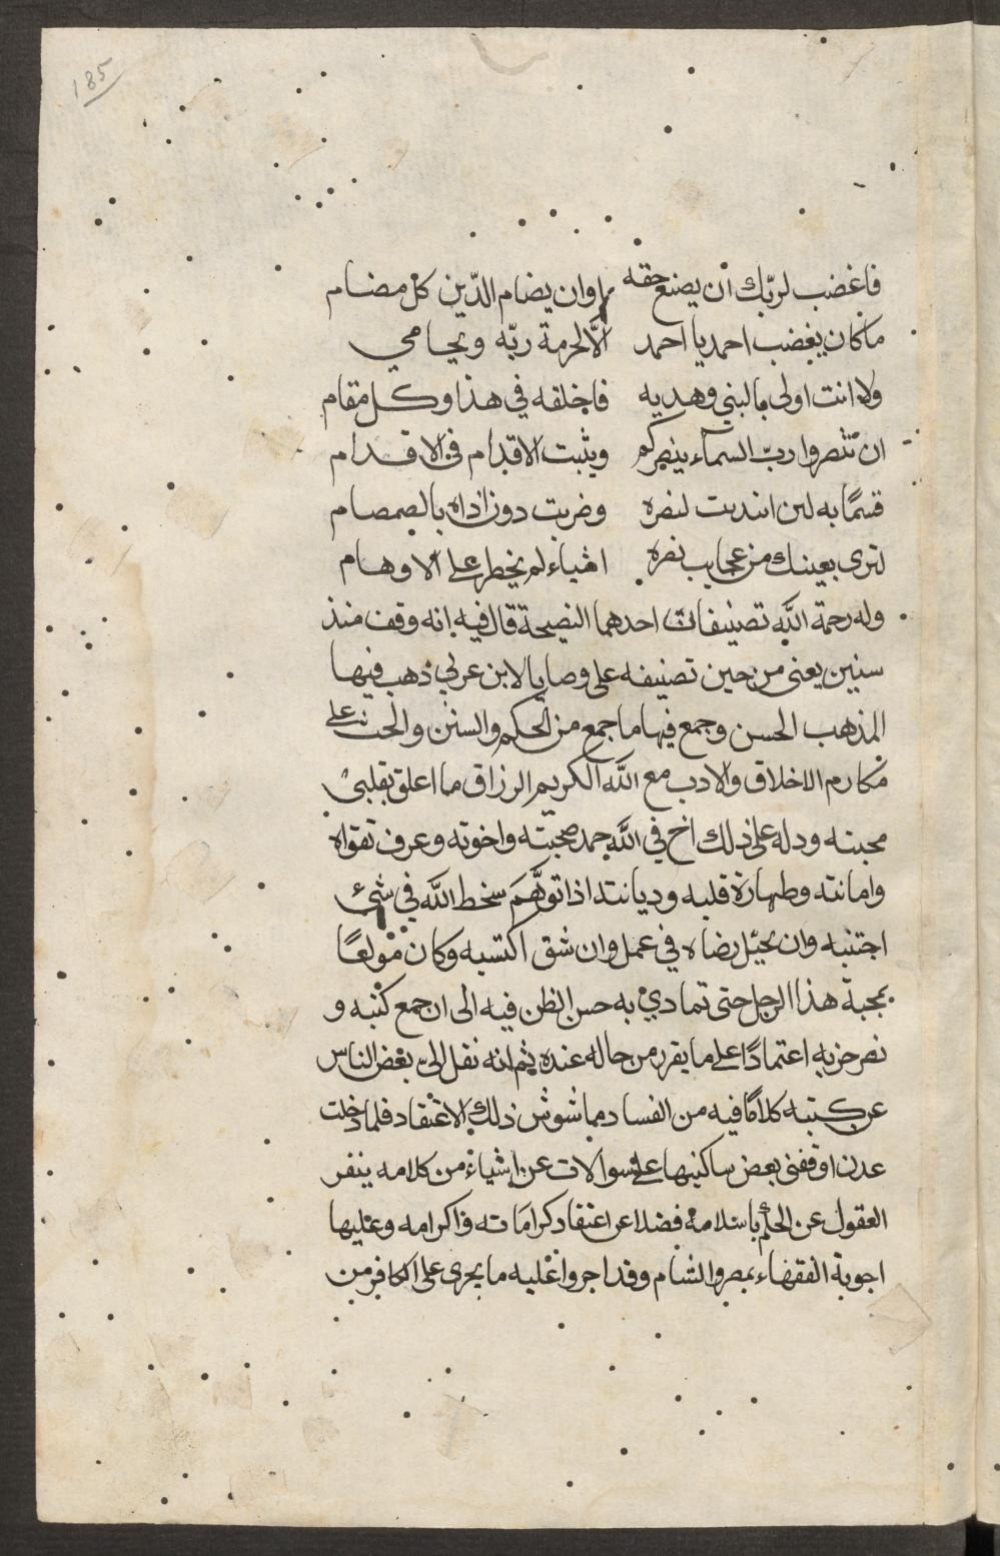 185
فاغضب لربّك أن يضيع حقه وان يضام الدّين كل مضام
ماكان يغضب احمد يا احمد الّا لحرمة ربّه ويحامي
ولا انت اولى بالنبي وهديه فاخلفه في هذا وكل مقام
ان تنصروا ربّ السماء ينصركم ويثبت الاقدام في الاقدام
قسمًا به لىن انتدبت لنصره وضربت دون اذاه بالصمصام
لترى بعينك من عجايب نصره اشياء لم يخطر على الاوهام
وله رحمة الله تصنيفات احدهما النصيحة قال فيه انه وقف منذ
سنين يعنى من حين تصنيفه على وصايا لابن عربي ذهب فيها
المذهب الحسن وجمع فيها ما جمع من الحكم والسنن والحث على
مكارم الاخلاق والادب مع الله الكريم الرزاق ما اعلق بقلبي
محبته ودله على ذلك اخ في الله حمد صحبته واخوته وعرف تقواه
وامانته وطهارة قلبه وديانته اذا توهّم سخط الله في شيء
اجتنبه وان يخيّل رضاه في عمل وان شق اكتسبه وكان مولعًا
بمحبة هذا الرجل حتى تمادي به حسن الظن فيه الى ان جمع كتبه و
نصر حزبه اعتمادًا على ما يقرر من حاله عنده ثم انه نقل الى بعض الناس
عن كتبه كلامًا فيه من الفساد مما شوش ذلك الاعتقاد فلما دخلت
عدن اوقفنى بعض ساكنيها على سوالات عن اشياء من كلامه ينفر
العقول عن الحكم باسلامه فضلا عن اعتقاد كراماته واكرامه وعليها
اجوبة الفقهاء بمصر والشام وقد اجروا عليه ما يجرى على الكافر من